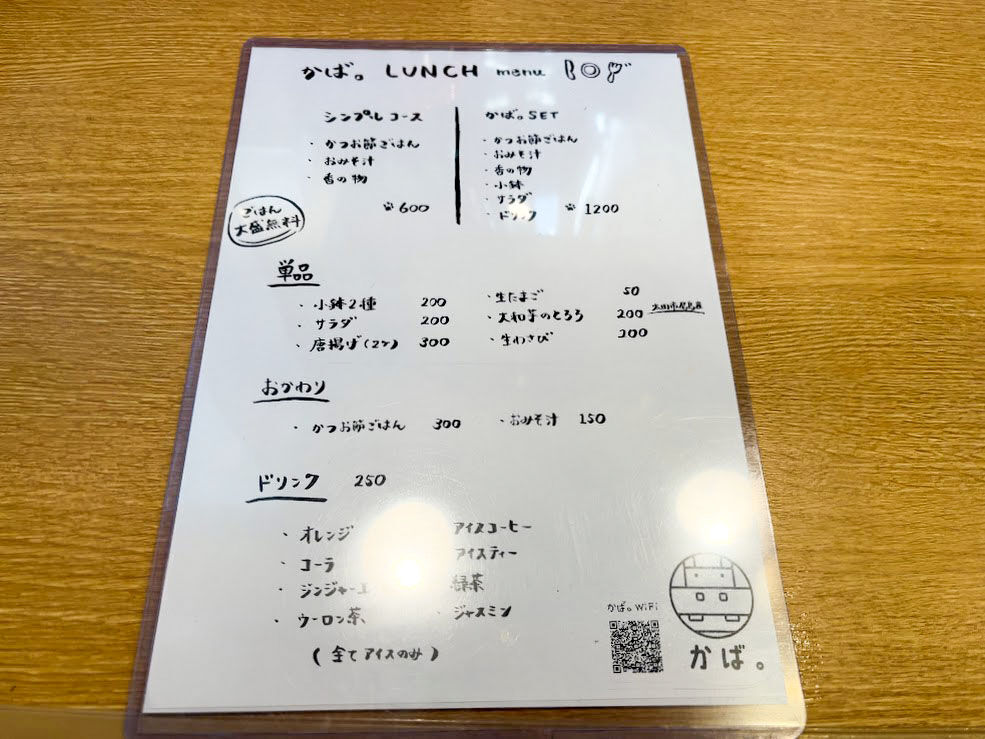 かば。 LUNCH menu
シンプルコース
・かつお節ごはん
・おみそ汁
・香の物
600
ごはん
大盛無料
かば。SET
・かつお節ごはん
・おみそ汁
・香の物
・小鉢
・サラダ
・ドリンク
1200
単品
・小鉢2種 200
・サラダ 200
・唐揚げ(2ケ) 300
・生たまご 50
・大和芋のとろろ 200
・生わさび 200
おかわり
・かつお節ごはん 300
・おみそ汁 150
ドリンク 250
・オレンジ
・コーラ
・ジンジャーエ
・ウーロン茶
アイスコーヒー
アイスティー
緑茶
・ジャスミン
(全てアイスのみ)
かば。WiFi
かば。